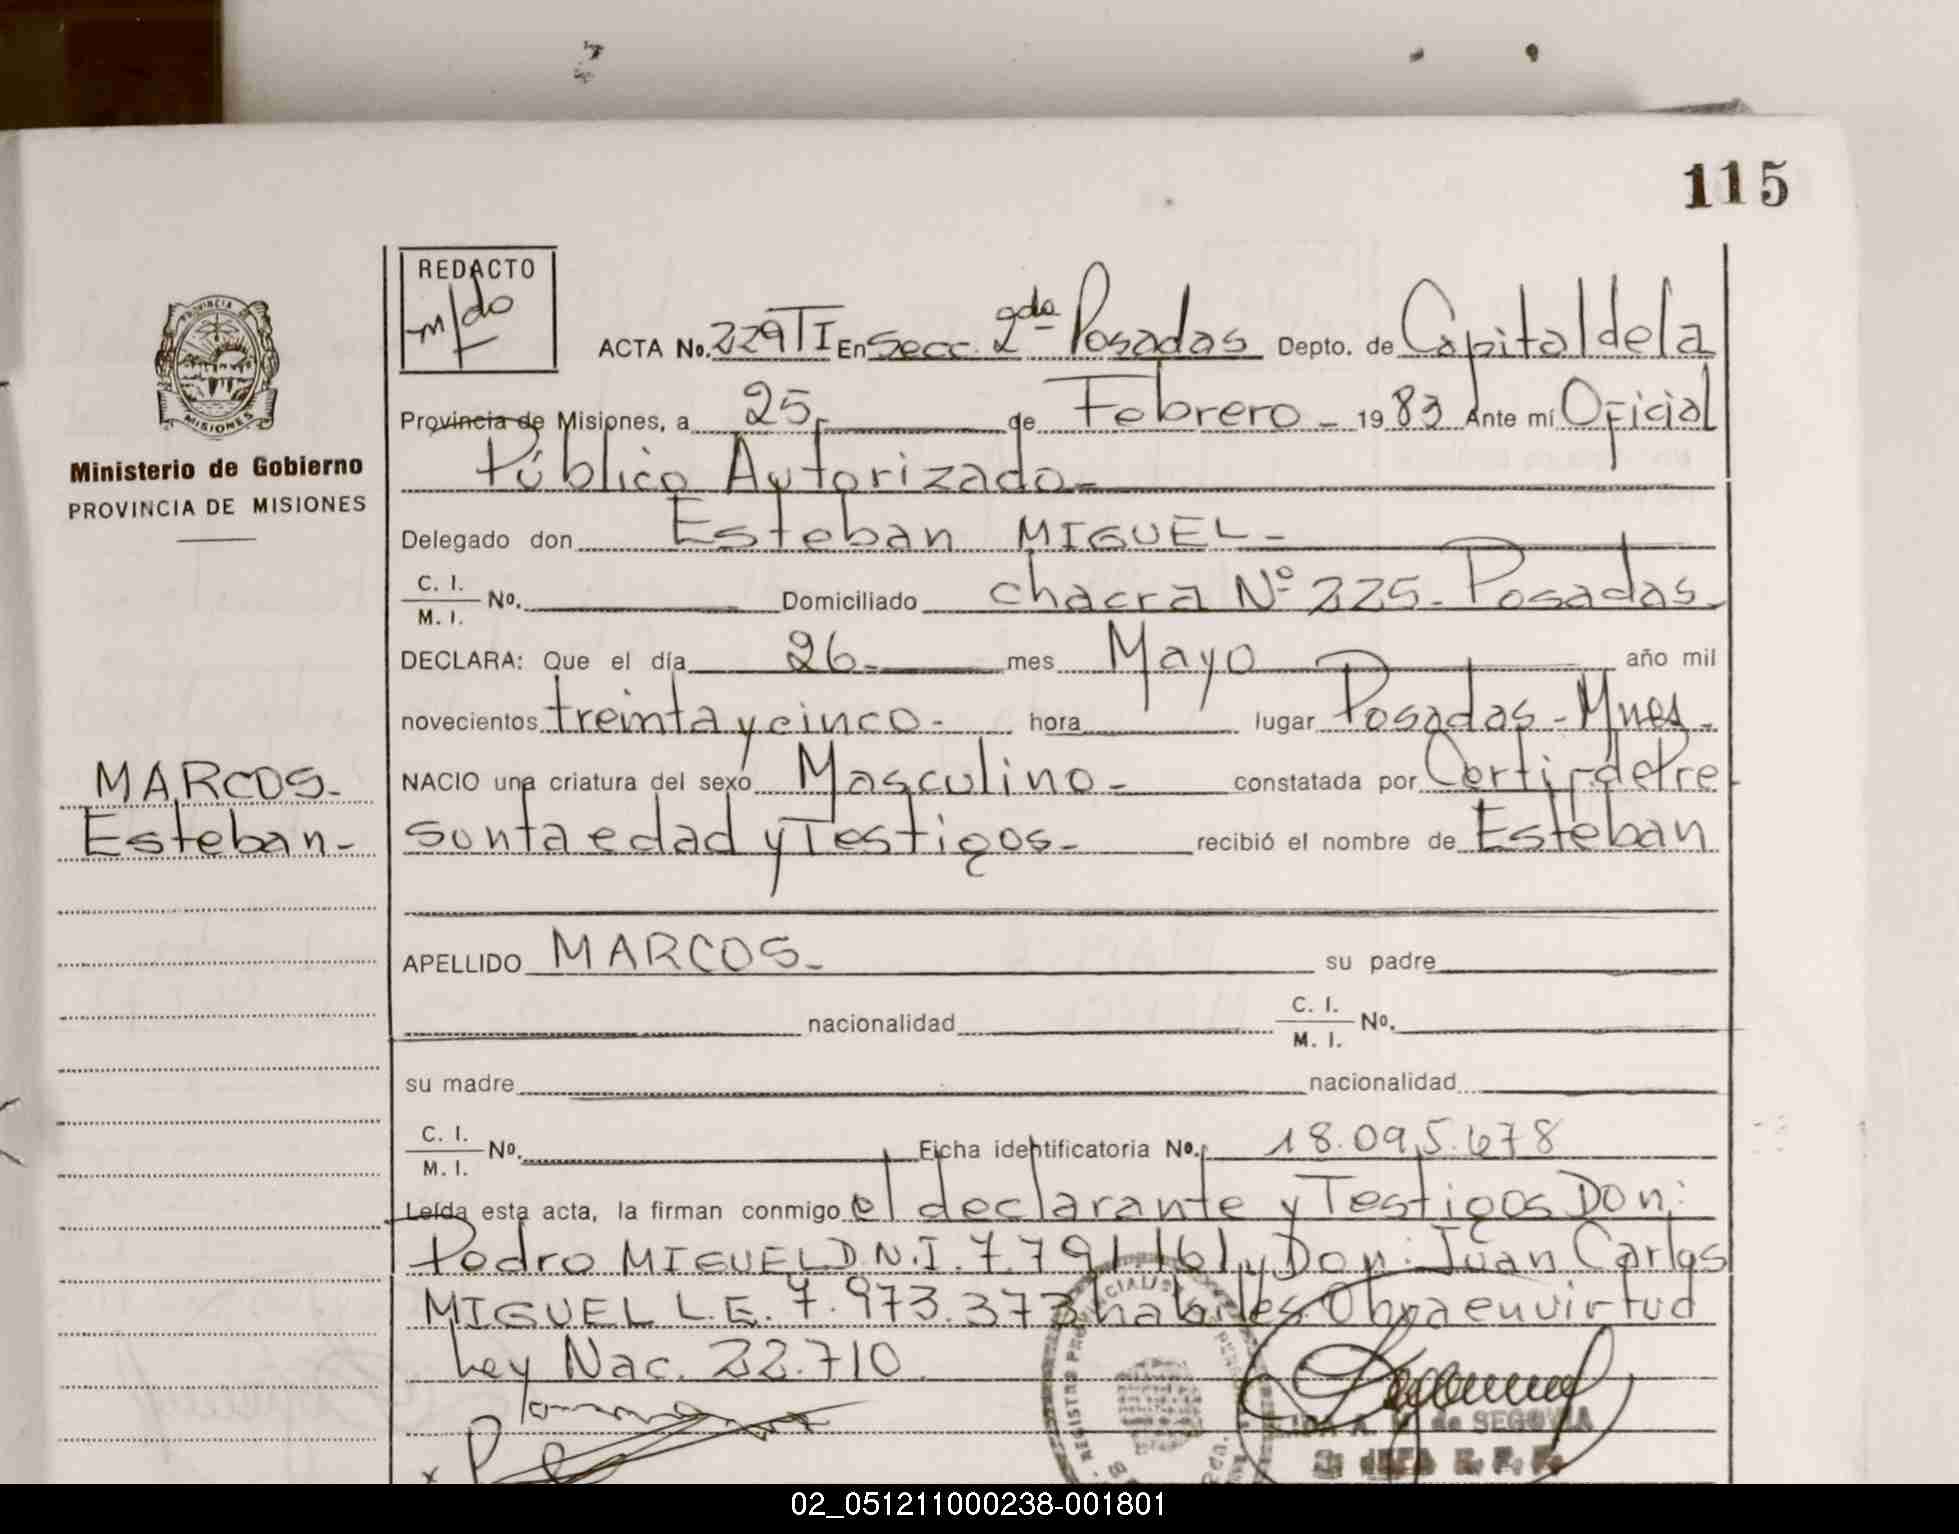 115
REDACTO
m/do
ACTA No. 229 TI En Secc. 2da Posadas Depto. de Capital de la
Provincia de Misiones, a 25 de Febrero - 1983 Ante mí Oficial
Público Autorizado -
Delegado don Esteban MIGUEL -
C. I.
M. I. No. Domiciliado chacra Nº 225 - Posadas -
DECLARA: Que el día 26 - mes Mayo año mil
novecientos treinta y cinco - hora lugar Posadas - Mnes -
NACIO una criatura del sexo Masculino - constatada por Certi. de Pre
sunta edad y Testigos - recibió el nombre de Esteban
APELLIDO MARCOS - su padre
nacionalidad C. I.
M. I. No.
su madre nacionalidad
C. I.
M. I. No. Ficha identificatoria No. 18.095.678
Leída esta acta, la firman conmigo el declarante y Testigos Don:
Pedro MIGUEL D.N.I. 7.791.161 y Don: Juan Carlos
MIGUEL L.E. 7.973.373 habiles. Obra en virtud
Ley Nac. 22.710
PROVINCIA
MISIONES
Ministerio de Gobierno
PROVINCIA DE MISIONES
MARCOS -
Esteban -
REGISTRO PROVINCIAL
de SEGOVIA
02_051211000238-001801